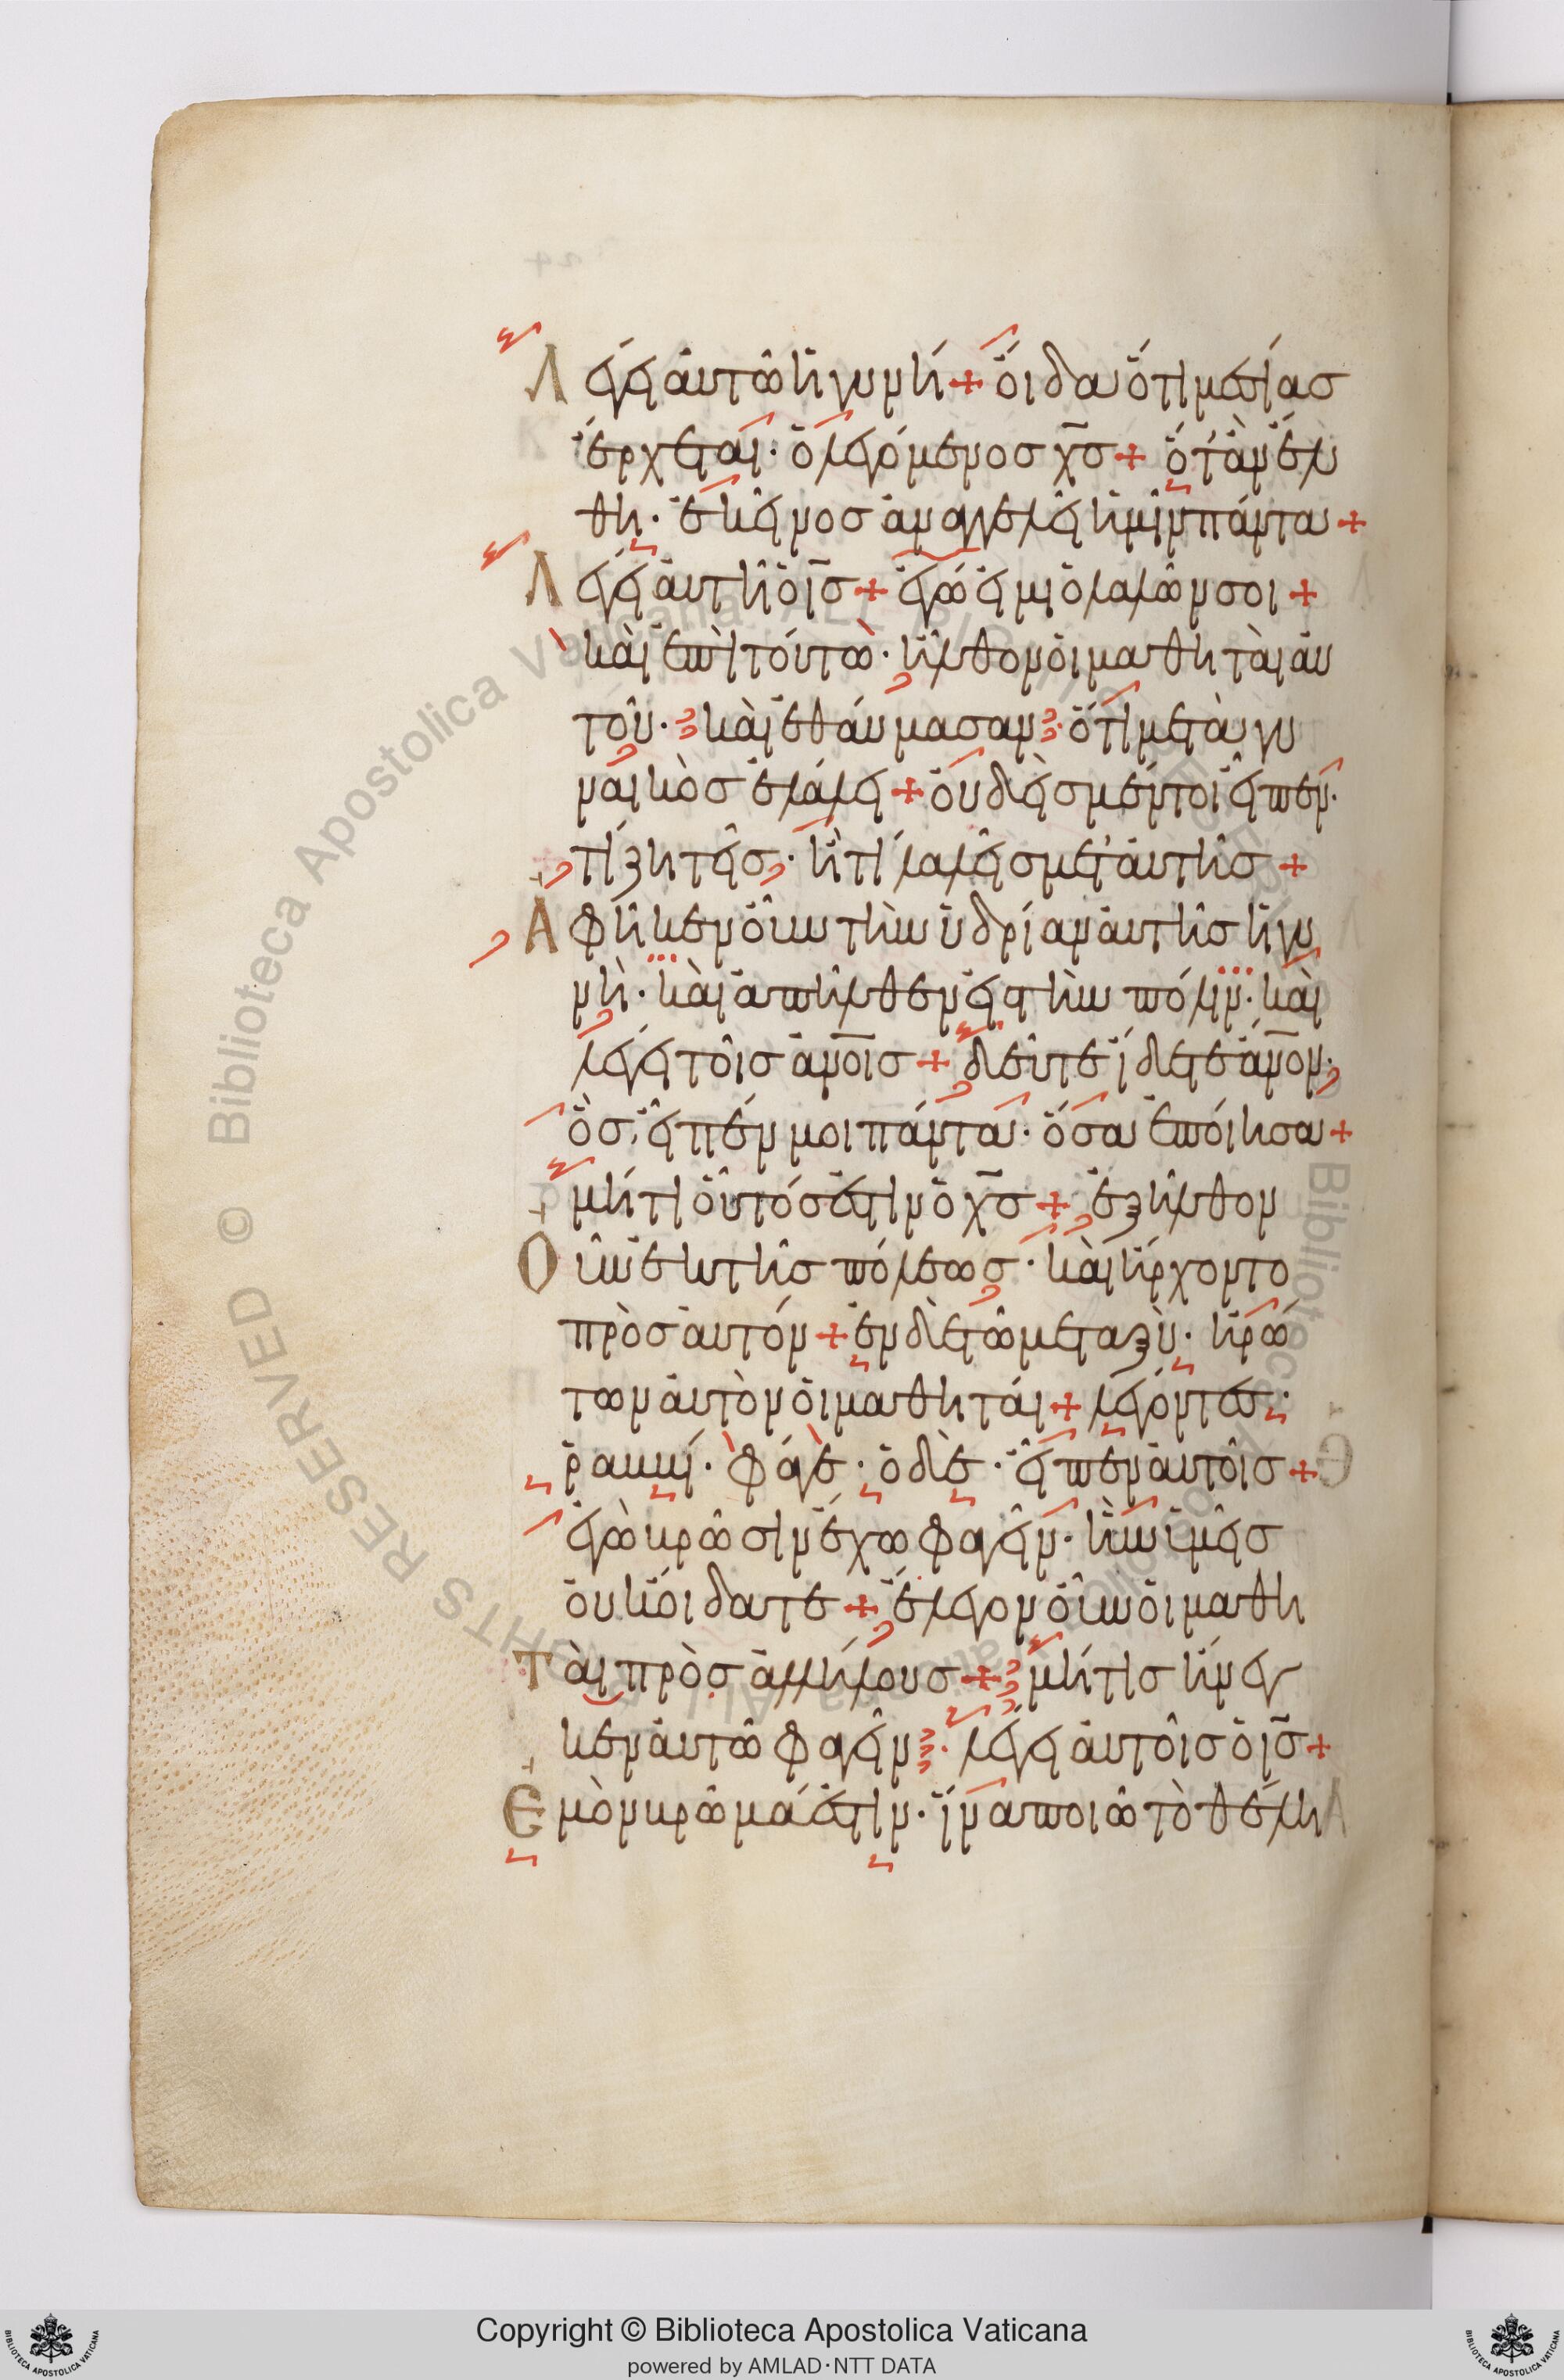 Λέγει ἀυτῶ ἡ γυνή + ὅιδα ὅτι μεσίασ
ἔρχεται· ὁ λεγόμενοσ χ̅σ̅ + ὅτ' ἂν ἔλ
θη· ἐκεῖνοσ ἀναγγελεῖ ἡμῖν πάντα +
Λέγει ἀυτῆ ὁ ι̅σ̅ + ἐγώ εἰμι ὁ λαλῶν σοι +
κὰι ἐπὶ τόυτω· ἦλθον ὁι μαθητὰι ἀυ
τοῦ· κὰι ἐθάυμασαν· ὅτι μετὰ γυ
ναικὸσ ἐλάλει + ὀυδεὶσ μέντοι εἶπεν·
τί ζητεῖσ· ἢ τί λαλεῖσ μετ' ἀυτῆσ +
Ἀφῆκεν ὀῦν τὴν ὑδρίαν ἀυτῆσ ἡ γυ
νὴ· κὰι ἀπῆλθεν εἰσ τὴν πόλιν· κὰι
λέγει τοῖσ α̅ν̅ο̅ι̅σ + δεῦτε ἴδετε α̅ν̅ο̅ν·
ὃσ εἶπέν μοι πάντα· ὅσα ἐποίησα +
μήτι ὁῦτόσ ἐστιν ὁ χ̅σ̅ + ἐξῆλθον
Οῦν ἐκ τῆσ πόλεωσ· κὰι ἤρχοντο
πρὸσ ἀυτόν + ἐν δὲ τῶ μεταξὺ· ἠρώ
των ἀυτὸν ὁι μαθητάι + λέγοντεσ·
ῥαββί· φάγε· ὁ δὲ· εἶπεν ἀυτοῖσ +
ἐγὼ βρῶσιν ἔχω φαγεῖν· ἣν ὑμεῖσ
ὀυκ ὄιδατε + ἔλεγον ὀῦν ὁι μαθη
Τὰι πρὸσ ἀλλήλουσ + μήτισ ἤνεγ
κεν ἀυτῶ φαγεῖν· λέγει ἀυτοῖσ ὁ ι̅σ̅ +
Ἐμὸν βρῶμά ἐστιν· ἵνα ποιῶ τὸ θέλη
Copyright © Biblioteca Apostolica Vaticana
powered by AMLAD·NTT DATA